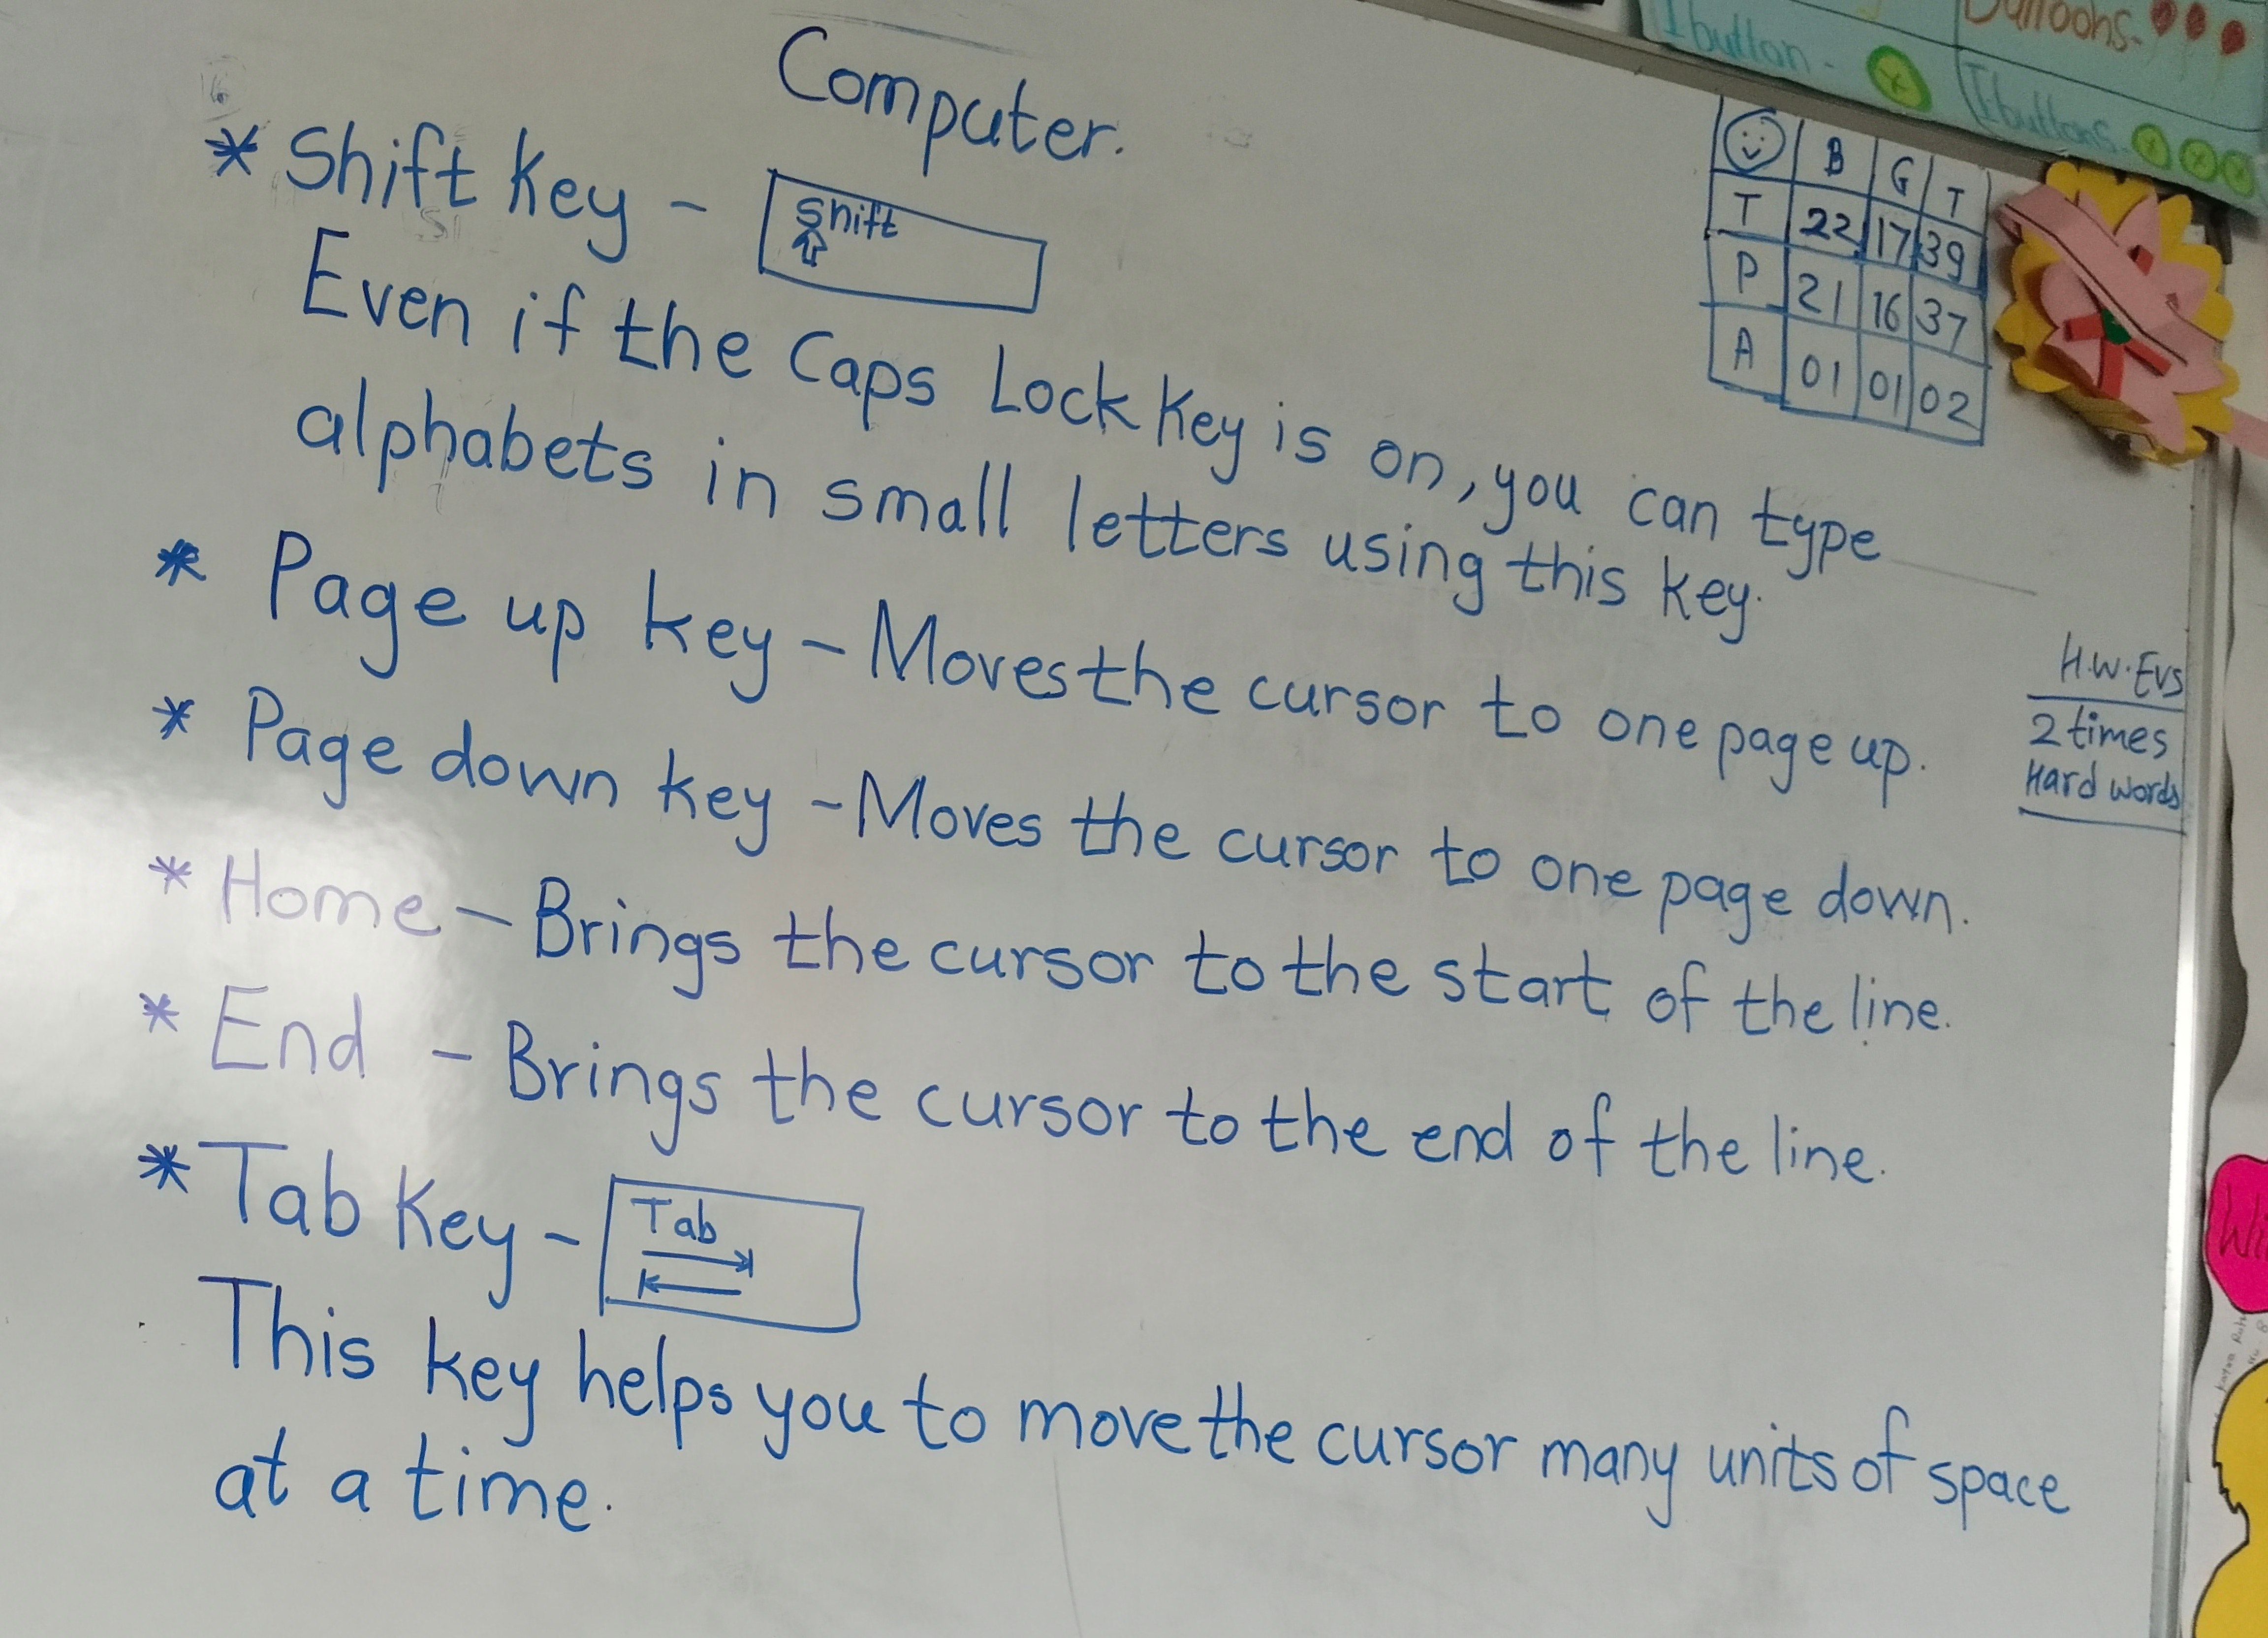 Computer.
* Shift key - Shift
Even if the Caps Lock Key is on, you can type
alphabets in small letters using this key.
* Page up key - Moves the cursor to one page up.
* Page down key - Moves the cursor to one page down.
* Home - Brings the cursor to the start of the line.
* End - Brings the cursor to the end of the line.
* Tab Key - Tab
This key helps you to move the cursor many units of space
at a time.
B G T
T 22 17 39
P 21 16 37
A 01 01 02
H.W. Evs
2 times
Hard words
Balloons-
1 button -
buttons-